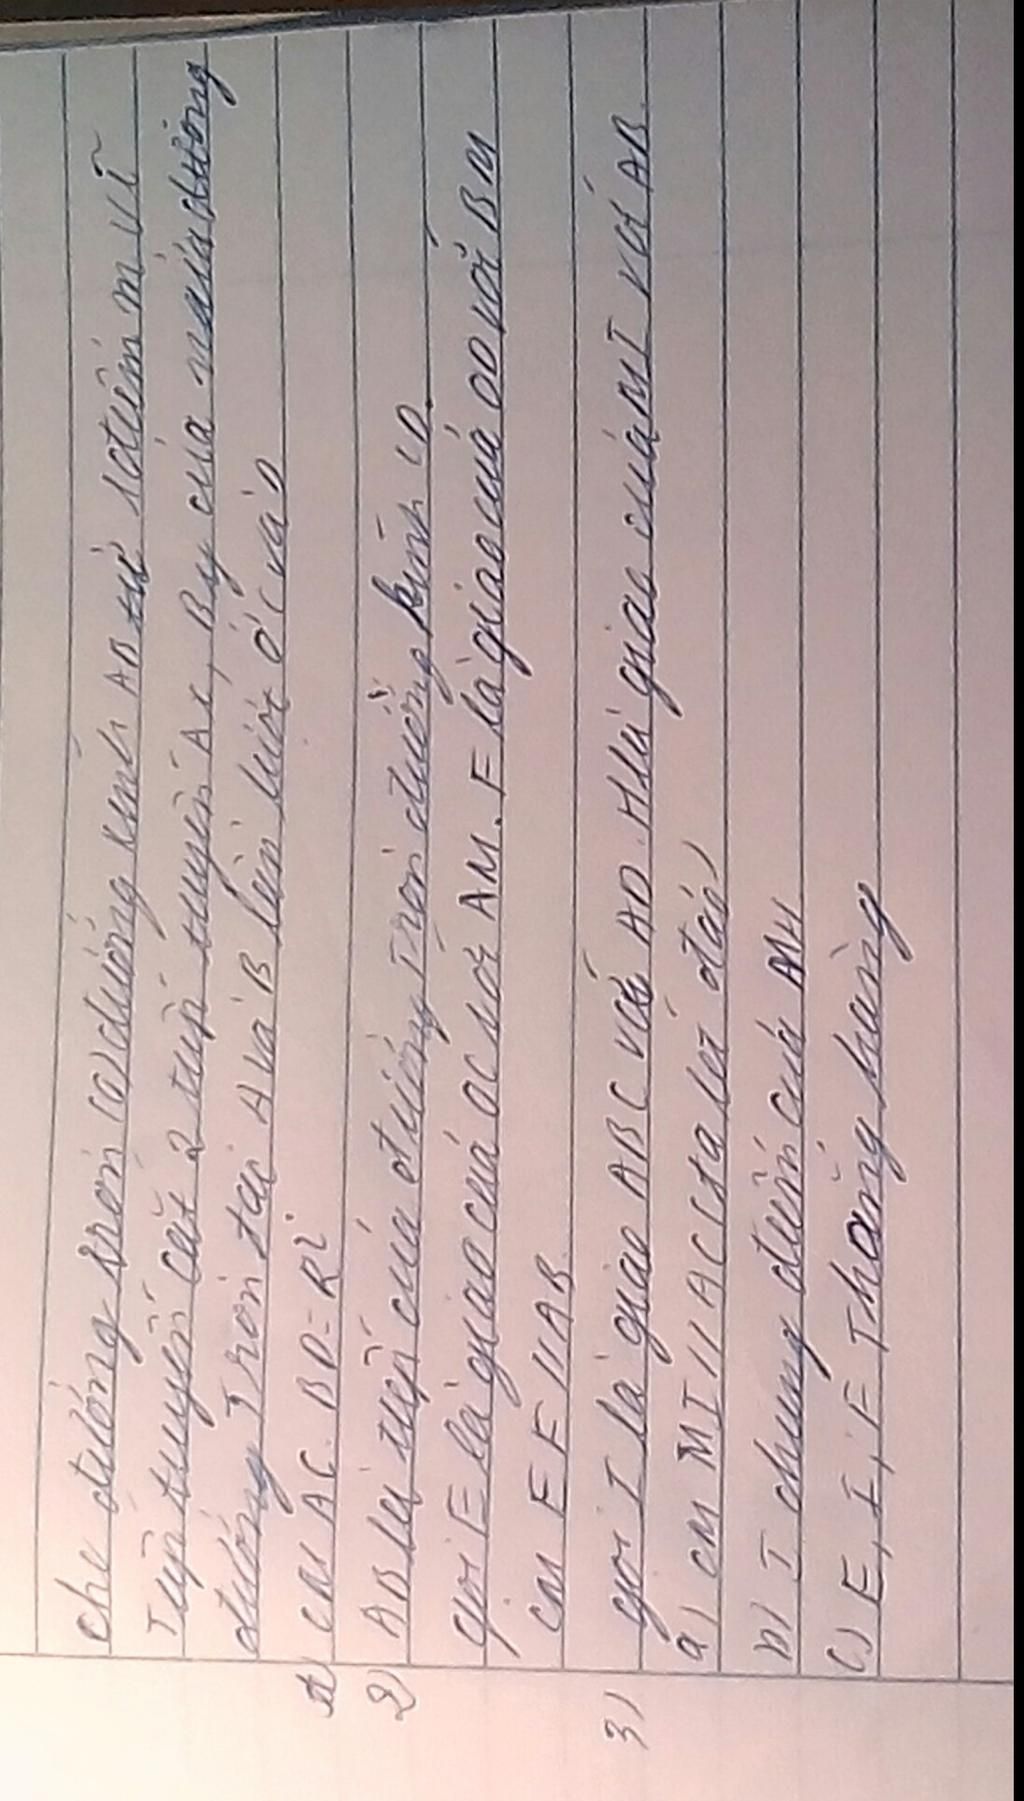 cho đường tròn (O) đường kính AB từ 1 điểm M vẽ
Tiếp tuyến cắt 2 tiếp tuyến Ax, By của nửa đường
đường Tròn tại A và B lần lượt ở C và D
1) CM AC. BD = R²
2) AB là tiếp của đường Tròn đường kính CD.
gọi E là giao của OC với AM. F là giao của OD với BM
CM E F // AB.
3) gọi I là giao BC và AD. H là giao của MI với AB.
a) CM MI // AC (Ta lét đảo)
b) I chung điểm của MH
c) E, I, F Thẳng hàng